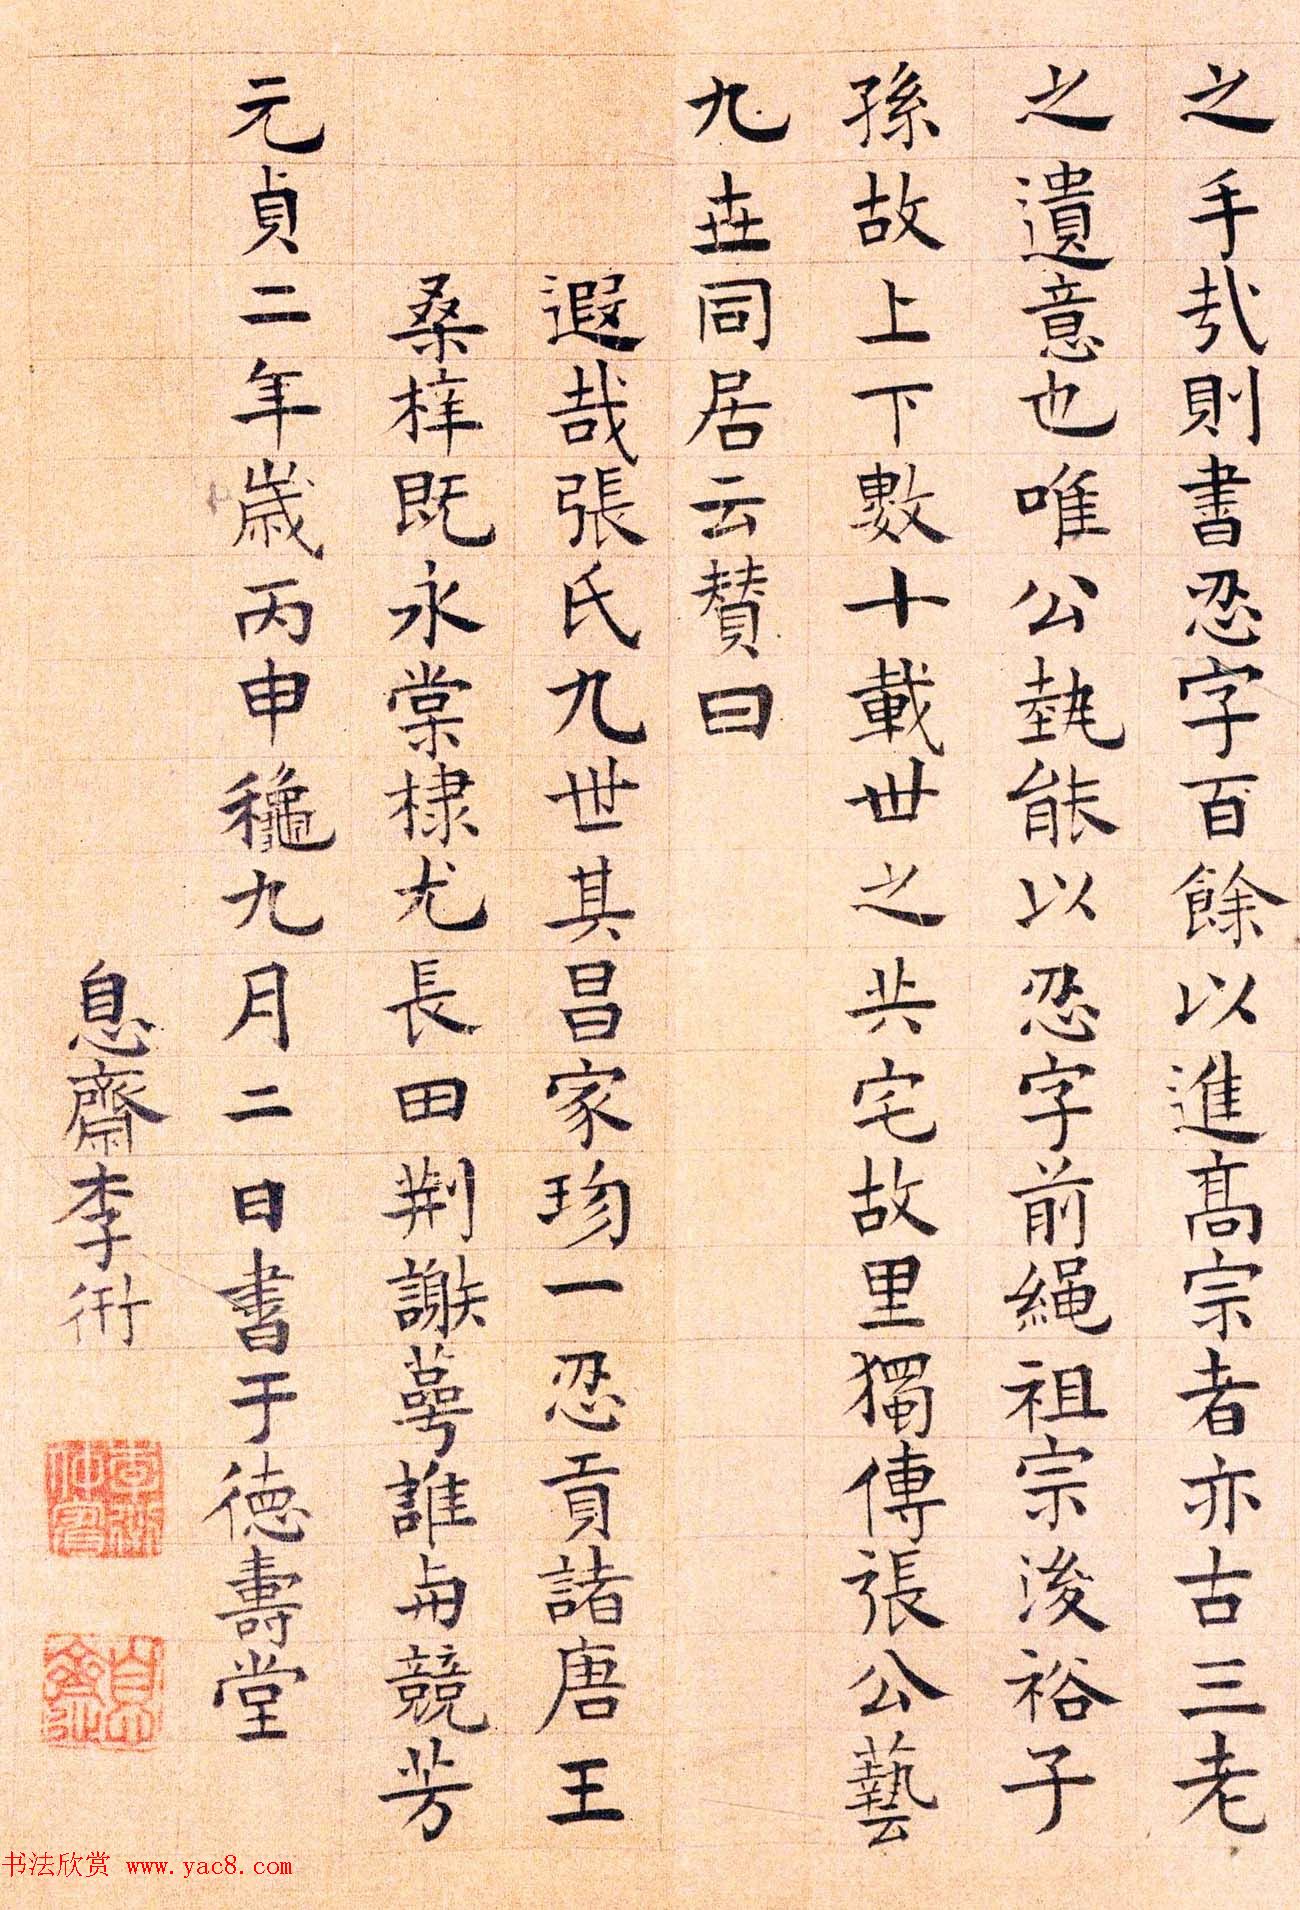 之手㢤則書忍字百餘以進髙宗者亦古三老
之遺意也唯公埶能以忍字前繩祖宗浚裕子
孫故上下數十載世之共宅故里獨傳張公藝
九世同居云賛曰
遐哉張氏九世其昌家珎一忍貢諸唐王
桑梓既永棠棣尤長田荆謝蕚誰与競芳
元貞二年歲丙申龝九月二日書于德壽堂
息齋李衎
李衎仲賓
息齋
书法欣赏 www.yac8.com